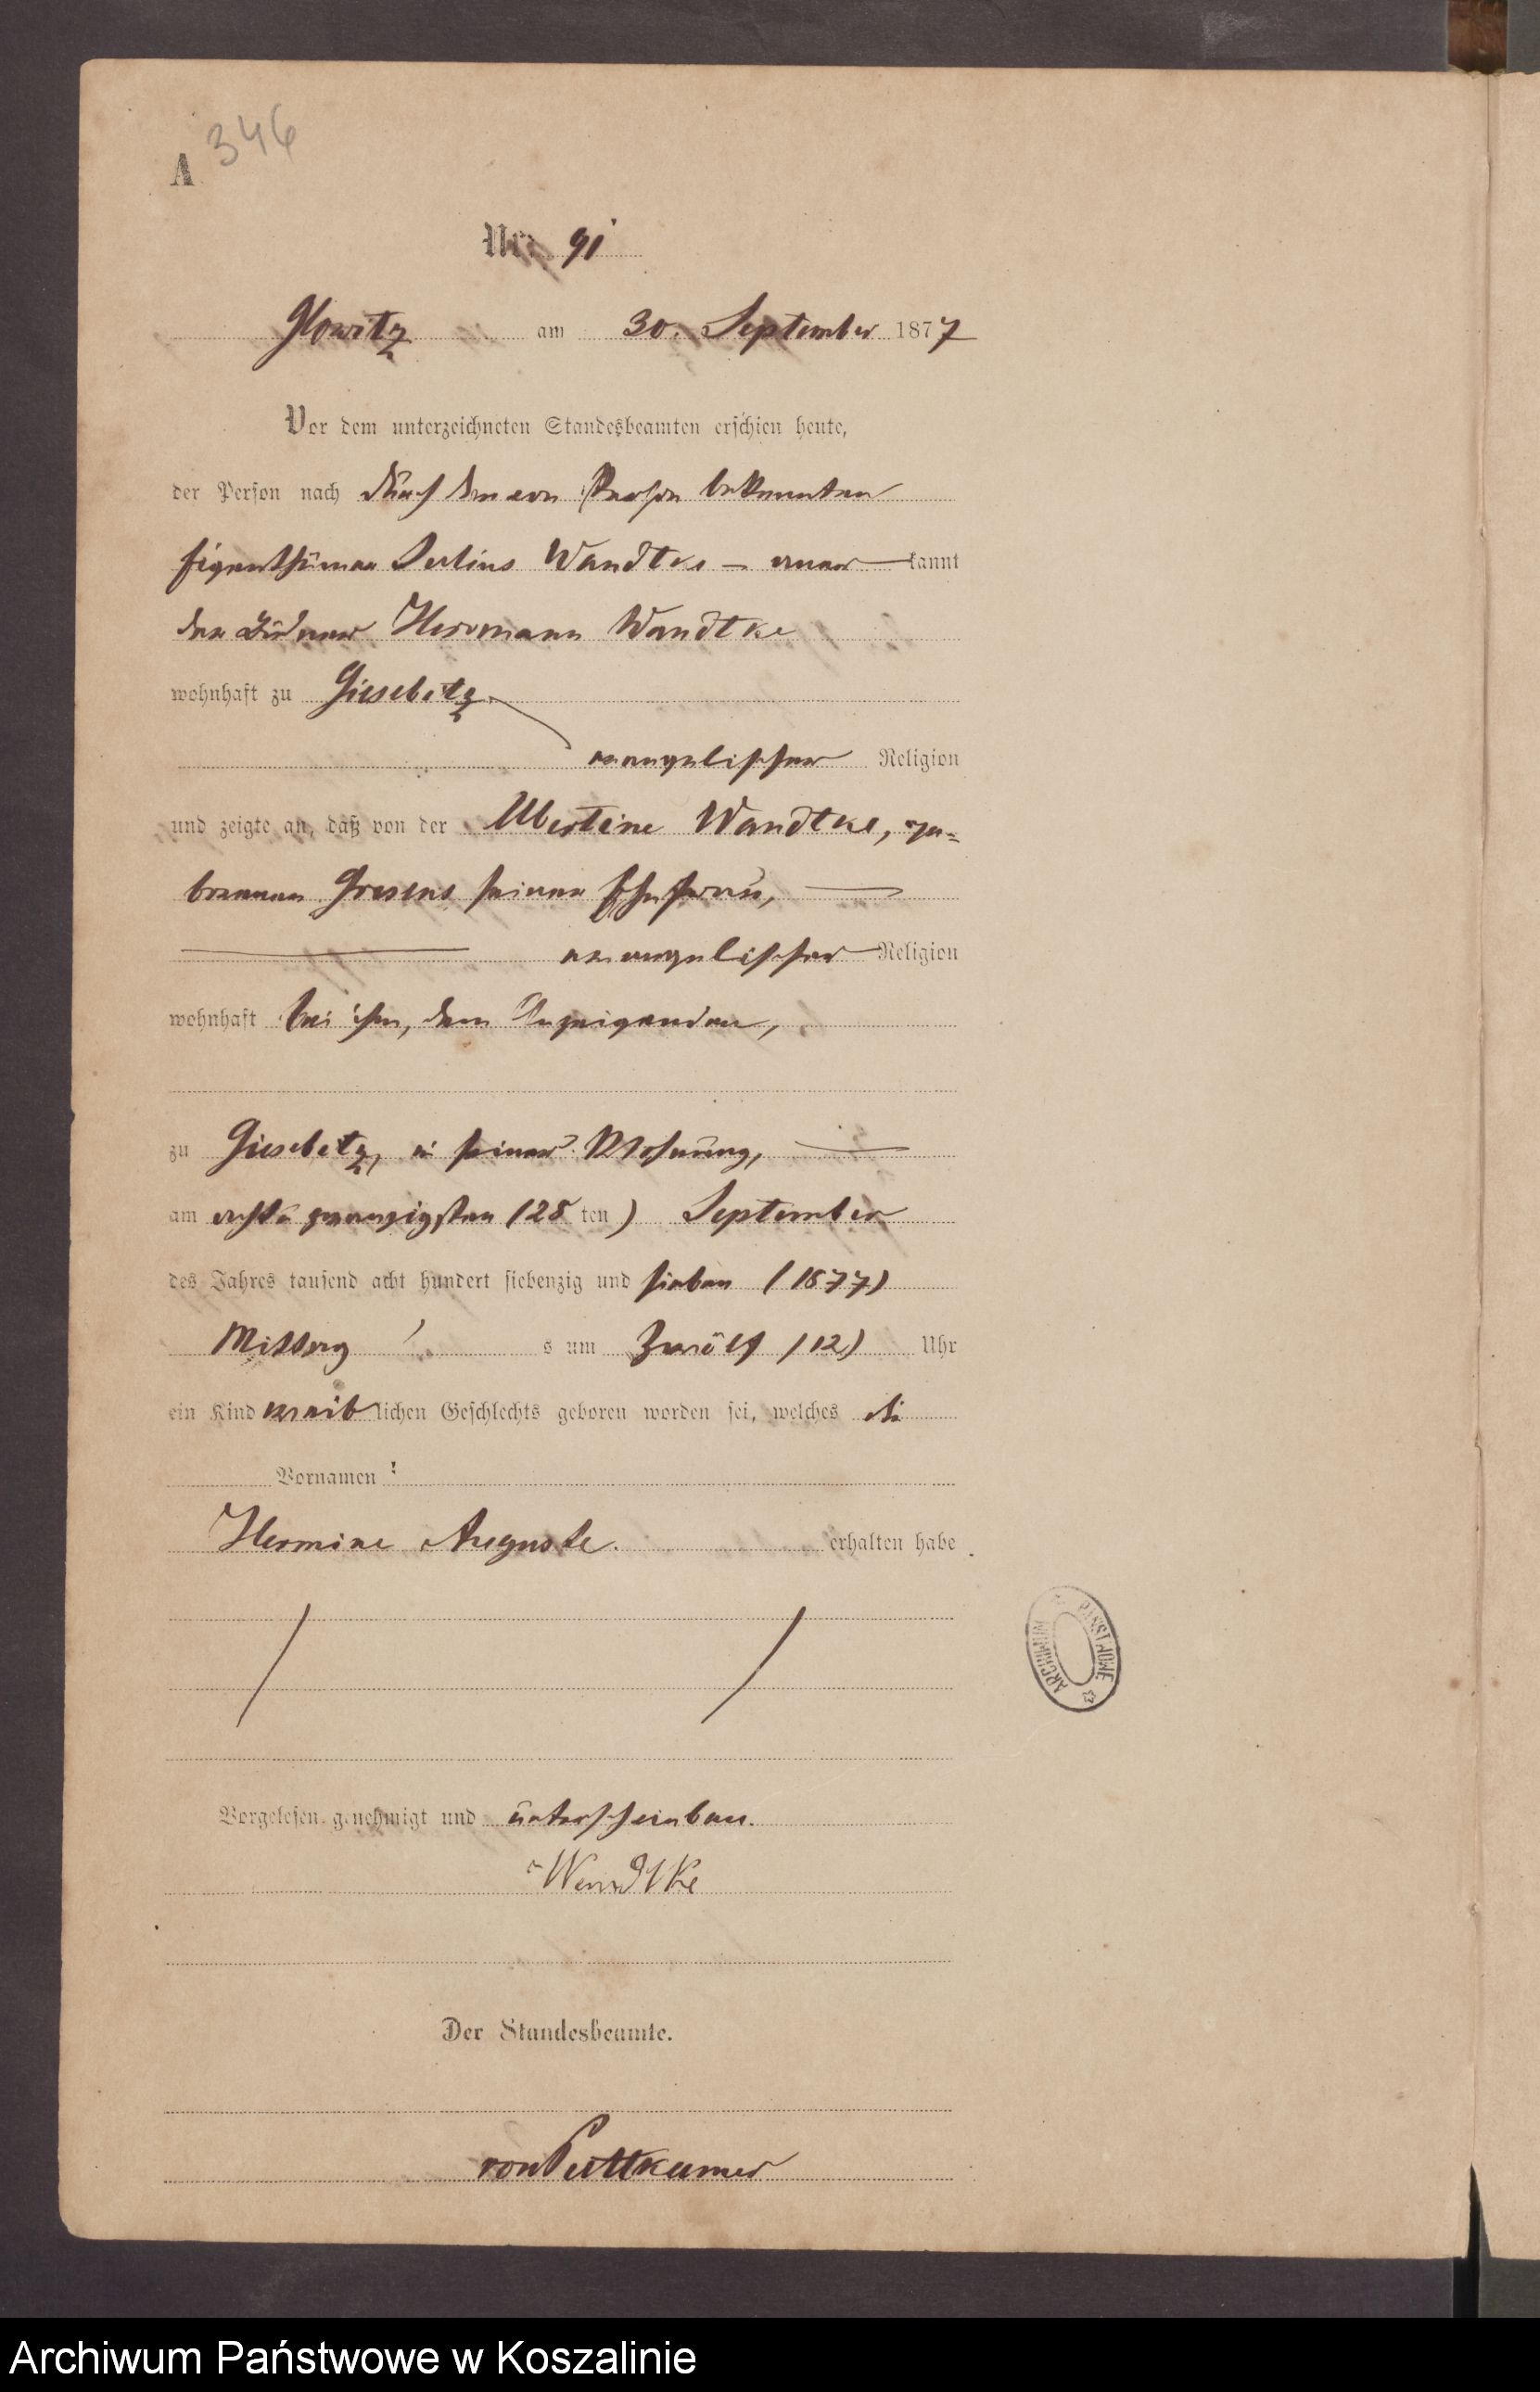 A 346
Nr. 91
Glowitz am 30. September 1877
Vor dem unterzeichneten Standesbeamten erschien heute,
der Person nach durch den von Person bekannten
Eigenthümer Julius Wandtke — aner kannt
der Büdner Herrmann Wandtke
wohnhaft zu Giesebitz
evangelischer Religion
und zeigte an, daß von der Albertine Wandtke, ge-
borenen Gresens seiner Ehefrau,
evangelischer Religion
wohnhaft bei ihm, dem Anzeigenden,
zu Giesebitz, in seiner Wohnung,
am acht u zwanzigsten (28 ten) September
des Jahres tausend acht hundert siebenzig und sieben (1877)
Mittag s um Zwölf (12) Uhr
ein Kind weib lichen Geschlechts geboren worden sei, welches die
Vornamen :
Hermine Auguste. erhalten habe.
ARCHIWUM PAŃSTWOWE
Vorgelesen, genehmigt und unterschrieben.
Wandtke
Der Standesbeamte.
von Puttkamer
Archiwum Państwowe w Koszalinie